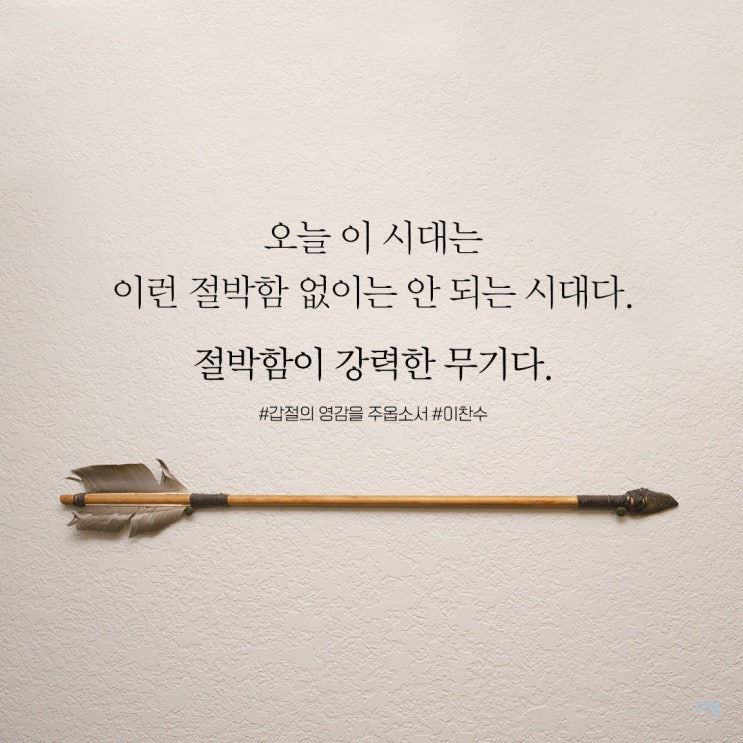 오늘 이 시대는
이런 절박함 없이는 안 되는 시대다.
절박함이 강력한 무기다.
#갑절의 영감을 주옵소서 #이찬수